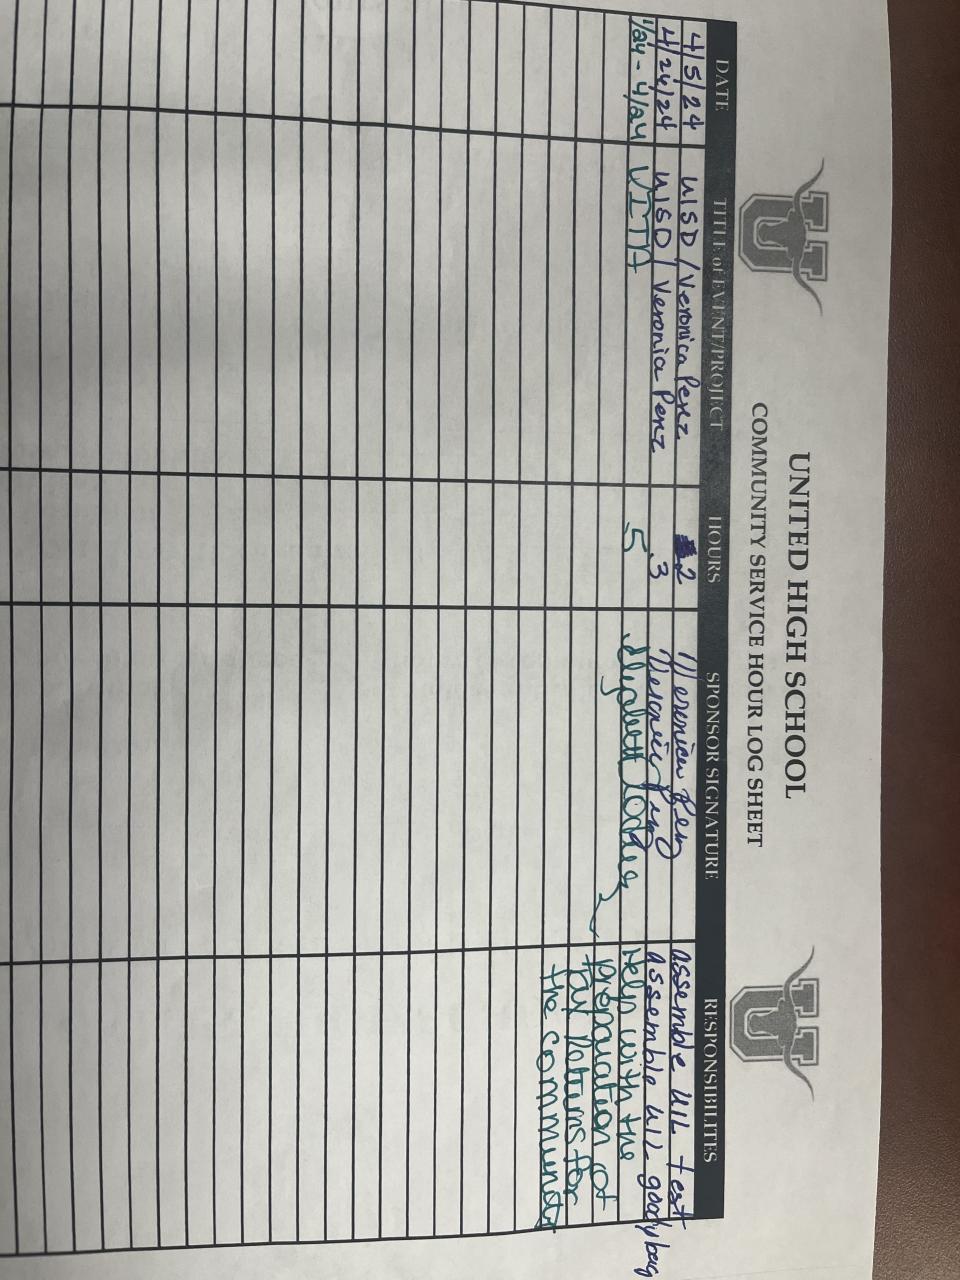 UNITED HIGH SCHOOL
COMMUNITY SERVICE HOUR LOG SHEET
DATE TITLE of EVENT/PROJECT HOURS SPONSOR SIGNATURE RESPONSIBILITES
4/5/24 UISD/Veronica Perez 2 Assemble UIL test
4/24/24 UISD/Veronia Perez 3 Assemble UIL goody bag
1/24-4/24 VITA 5 Elizabeth Help with the
prepaiation of
tax Returns for
the community